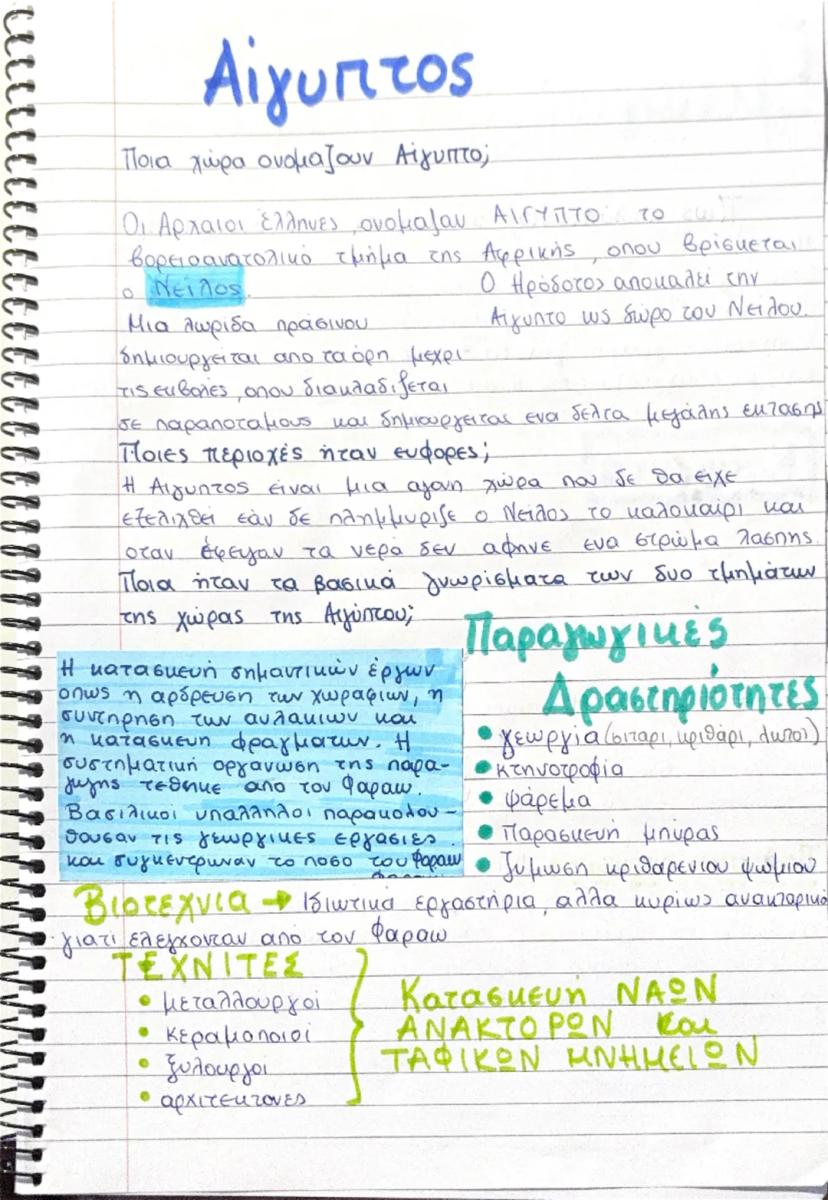 Αίγυπτος
Ποια χώρα ονομαζουν Αίγυπτο;
Οι Αρχαιοι έλληνες, ονομαζαν ΑΙΓΥΠΤΟ το
βορειοανατολικό τμήμα της Αφρικής, οπου βρίσκεται
ο Νείλος.
Μια λωρίδα πράσινου
δημιουργειται απο τα όρη μεχρι
τις εκβολές, οπου διακλαδιζεται
Ο Ηρόδοτος αποκαλεί την
Αίγυπτο ως δώρο του Νείλου.
σε παραποταμους και δημιουργειται ενα δελτα μεγάλης εκτασης
Ποιες περιοχές ήταν ευφορες;
Η Αιγυπτος είναι μια αγονη χώρα που δε θα ειχε
εξελιχθεί εάν δε πλημμυριζε ο Νείλος το καλοκαιρι και
οταν έφευγαν τα νερά δεν αφηνε ενα στρώμα λασπης.
Ποια ήταν τα βασικά γνωρίσματα των δυο τμημάτων
της χώρας της Αιγύπτου;
Η κατασκευή σημαντικών έργων
οπως η αρδρευση των χωραφιων, η
συντηρηση των αυλακιων και
η κατασκευη φραγματων. Η
συστηματική οργανωση της παρα-
γωγης τεθηκε απο τον Φαραω.
Βασιλικοι υπαλληλοι παρακολου-
θουσαν τις γεωργικες εργασιες
και συγκεντρωναν το ποσο του Φαραω
Παραγωγικές
Δραστηριότητες
• γεωργία (σιταρι, κριθάρι, λωτοί)
• κτηνοτροφία
• ψάρεμα
• Παρασκευή μπύρας
• ζυμωση κριθαρενιου ψωμιου
Βιοτεχνια → Ιδιωτικά εργαστήρια, αλλα κυρίως ανακτορικά
γιατι ελεγχονταν απο τον Φαραω
ΤΕΧΝΙΤΕΣ
• μεταλλουργοι
• κεραμοποιοι
• ξυλουργοι
• αρχιτεκτονες
Κατασκευή ΝΑΩΝ
ΑΝΑΚΤΟΡΩΝ και
ΤΑΦΙΚΩΝ ΜΝΗΜΕΙΩΝ